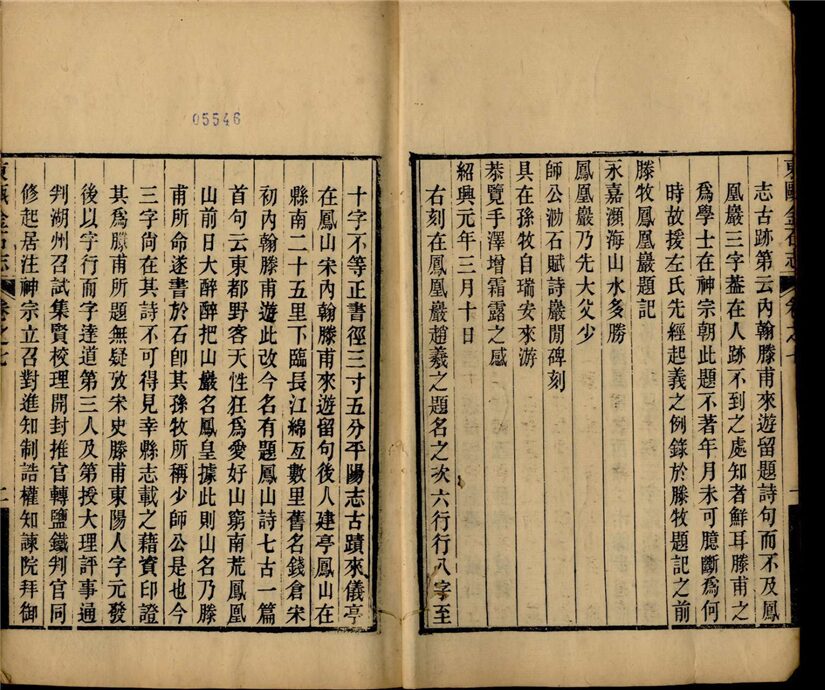 東甌金石志
卷之七
志古跡第云內翰滕甫來遊留題詩句而不及鳳
凰巖三字葢在人跡不到之處知者鮮耳滕甫之
為學士在神宗朝此題不著年月未可臆斷為何
時故援左氏先經起義之例錄於滕牧題記之前
滕牧鳳凰巖題記
永嘉瀕海山水多勝
鳳凰巖乃先大父少
師公泐石賦詩巖間碑刻
具在孫牧自瑞安來游
恭覽手澤增霜露之感
紹興元年三月十日
右刻在鳳凰巖趙羲之題名之次六行行八字至
05546
十字不等正書徑三寸五分平陽志古蹟來儀亭
在鳳山宋內翰滕甫來遊留句後人建亭鳳山在
縣南二十五里下臨長江綿亙數里舊名錢倉宋
初內翰滕甫遊此改今名有題鳳山詩七古一篇
首句云東都野客天性狂為愛好山窮南荒鳳凰
山前日大醉醉把山巖名鳳皇據此則山名乃滕
甫所命遂書於石卽其孫牧所稱少師公是也今
三字尙在其詩不可得見幸縣志載之藉資印證
其為滕甫所題無疑攷宋史滕甫東陽人字元發
後以字行而字達道第三人及第授大理評事通
判湖州召試集賢校理開封推官轉鹽鐵判官同
修起居注神宗立召對進知制誥權知諫院拜御
東甌金石志
卷之七